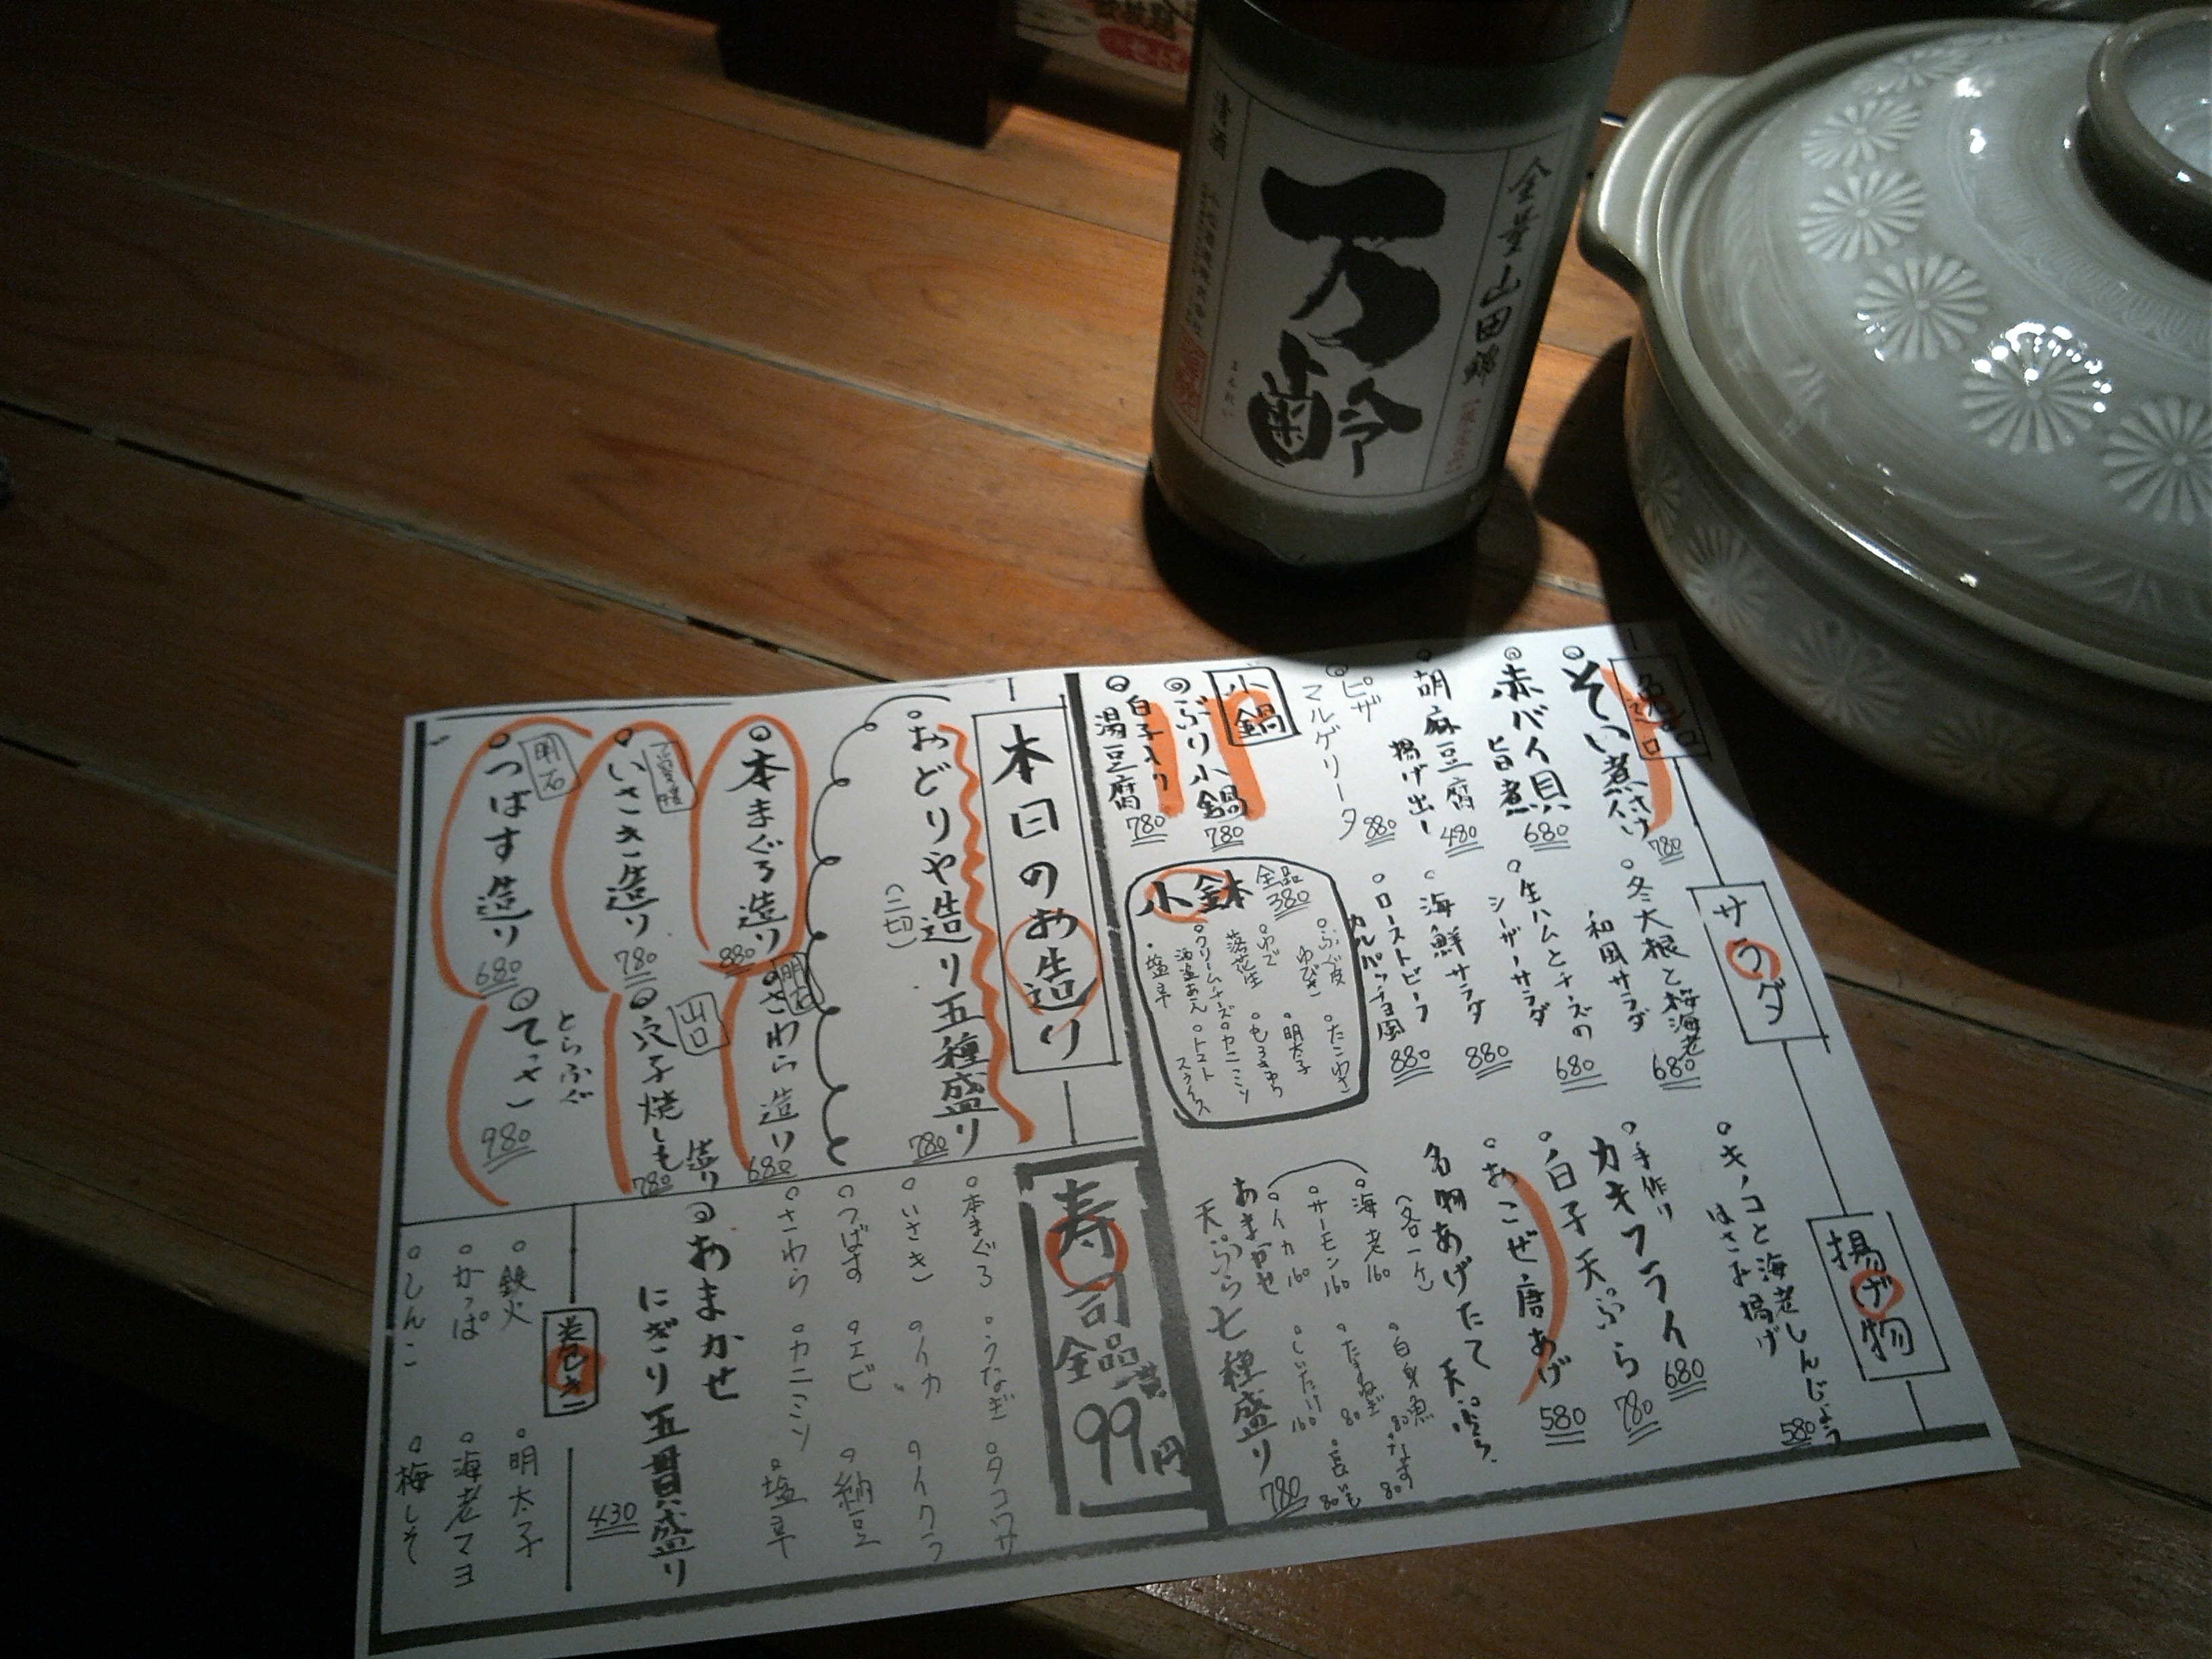 清酒
万齢
まんれい
全量山田錦
逸品
そい煮付け 780
赤バイ貝旨煮 680
胡麻豆腐揚げ出し 480
ピザマルゲリータ 880
小鍋
ぶり小鍋 780
白子入り湯豆腐 780
サラダ
冬大根と桜海老和風サラダ 680
生ハムとチーズのシーザーサラダ 680
海鮮サラダ 880
ローストビーフカルパッチョ風 880
小鉢 全品380
ふぐ皮ゆびき
たこわさ
ゆで落花生
明太子
もろきゅう
クリームチーズ酒盗あえ
カニミソ
塩辛
トマトスライス
揚げ物
キノコと海老しんじょうはさみ揚げ 580
手作りカキフライ 680
白子天ぷら 780
おこぜ唐あげ 580
名物あげたて天ぷら
(各一ケ)
海老 160
サーモン 160
イカ 160
白身魚 80
たまねぎ 80
しいたけ 160
なす 80
長いも 80
おまかせ天ぷら七種盛り 780
本日のお造り
おどりや造り五種盛り 780
(二切)
本まぐろ造り 880
いさき造り 780
明石
つばす造り 680
明石
さわら造り 680
山口
穴子焼しも造り 780
とらふぐ
てっさ 980
寿司全品一貫99円
本まぐろ
うなぎ
タコワサ
いさき
イカ
イクラ
つばす
エビ
納豆
さわら
カニミソ
塩辛
おまかせにぎり五貫盛り 430
巻き
鉄火
明太子
かっぱ
海老マヨ
しんこ
梅しそ